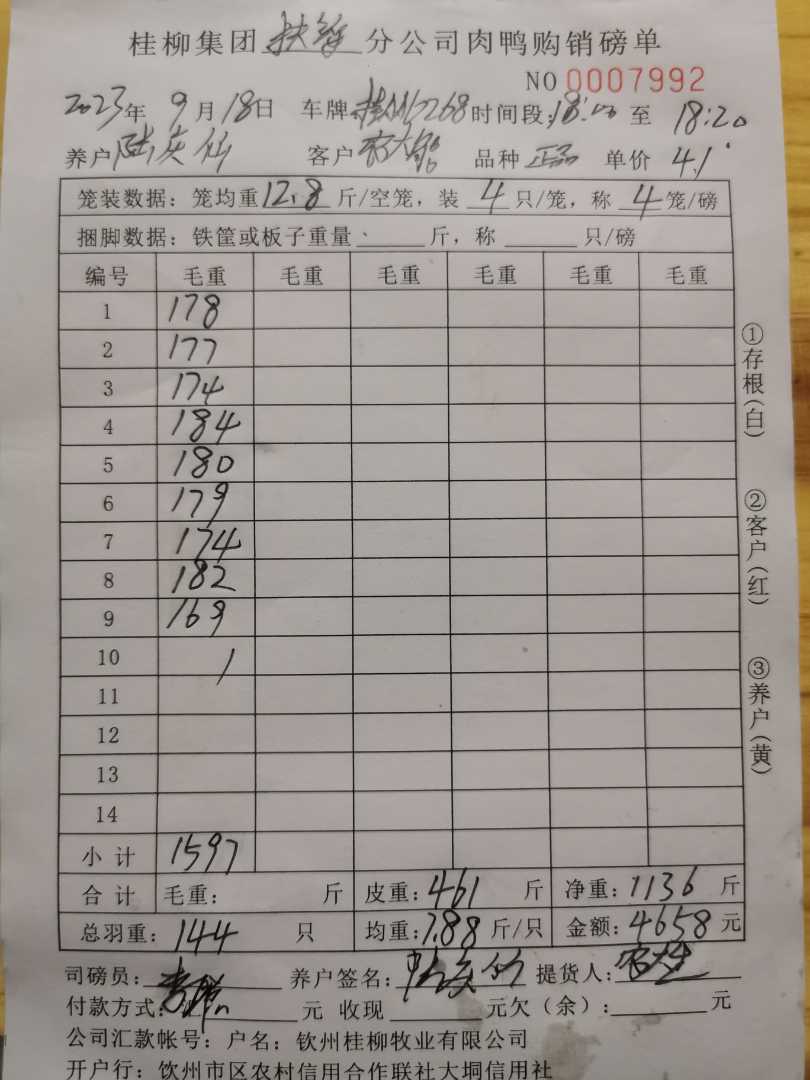 桂柳集团 分公司肉鸭购销磅单
NO 0007992
2023年 9月18日 车牌 268 时间段:18:00 至 18:20
养户 陆庆仙 客户 品种 正品 单价 4.1
笼装数据: 笼均重 12.8 斤/空笼, 装 4 只/笼, 称 4 笼/磅
捆脚数据: 铁筐或板子重量、 斤, 称 只/磅
编号 毛重 毛重 毛重 毛重 毛重 毛重
1 178
2 177
3 174
4 184
5 180
6 179
7 174
8 182
9 169
10 /
11
12
13
14
小 计 1597
合 计 毛重: 斤 皮重: 461 斤 净重: 1136 斤
总羽重: 144 只 均重: 7.88 斤/只 金额: 4658 元
司磅员: 养户签名: 陆庆仙 提货人:
付款方式: 元 收现 元欠(余): 元
公司汇款帐号: 户名: 钦州桂柳牧业有限公司
开户行: 钦州市区农村信用合作联社大垌信用社
①存根(白)
②客户(红)
③养户(黄)